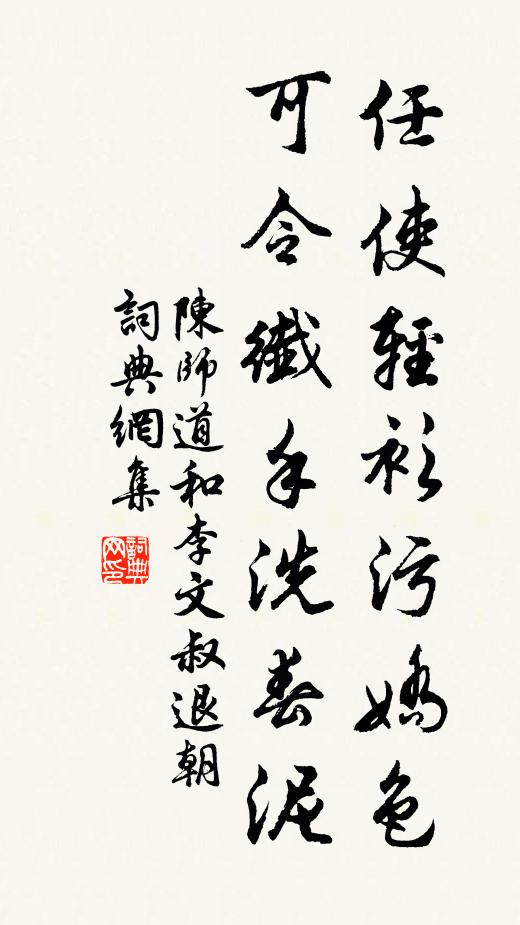 任使輕衫污嬌色
可令纖手洗春泥
陳師道和李文叔退朝
詞典網集
詞典网印